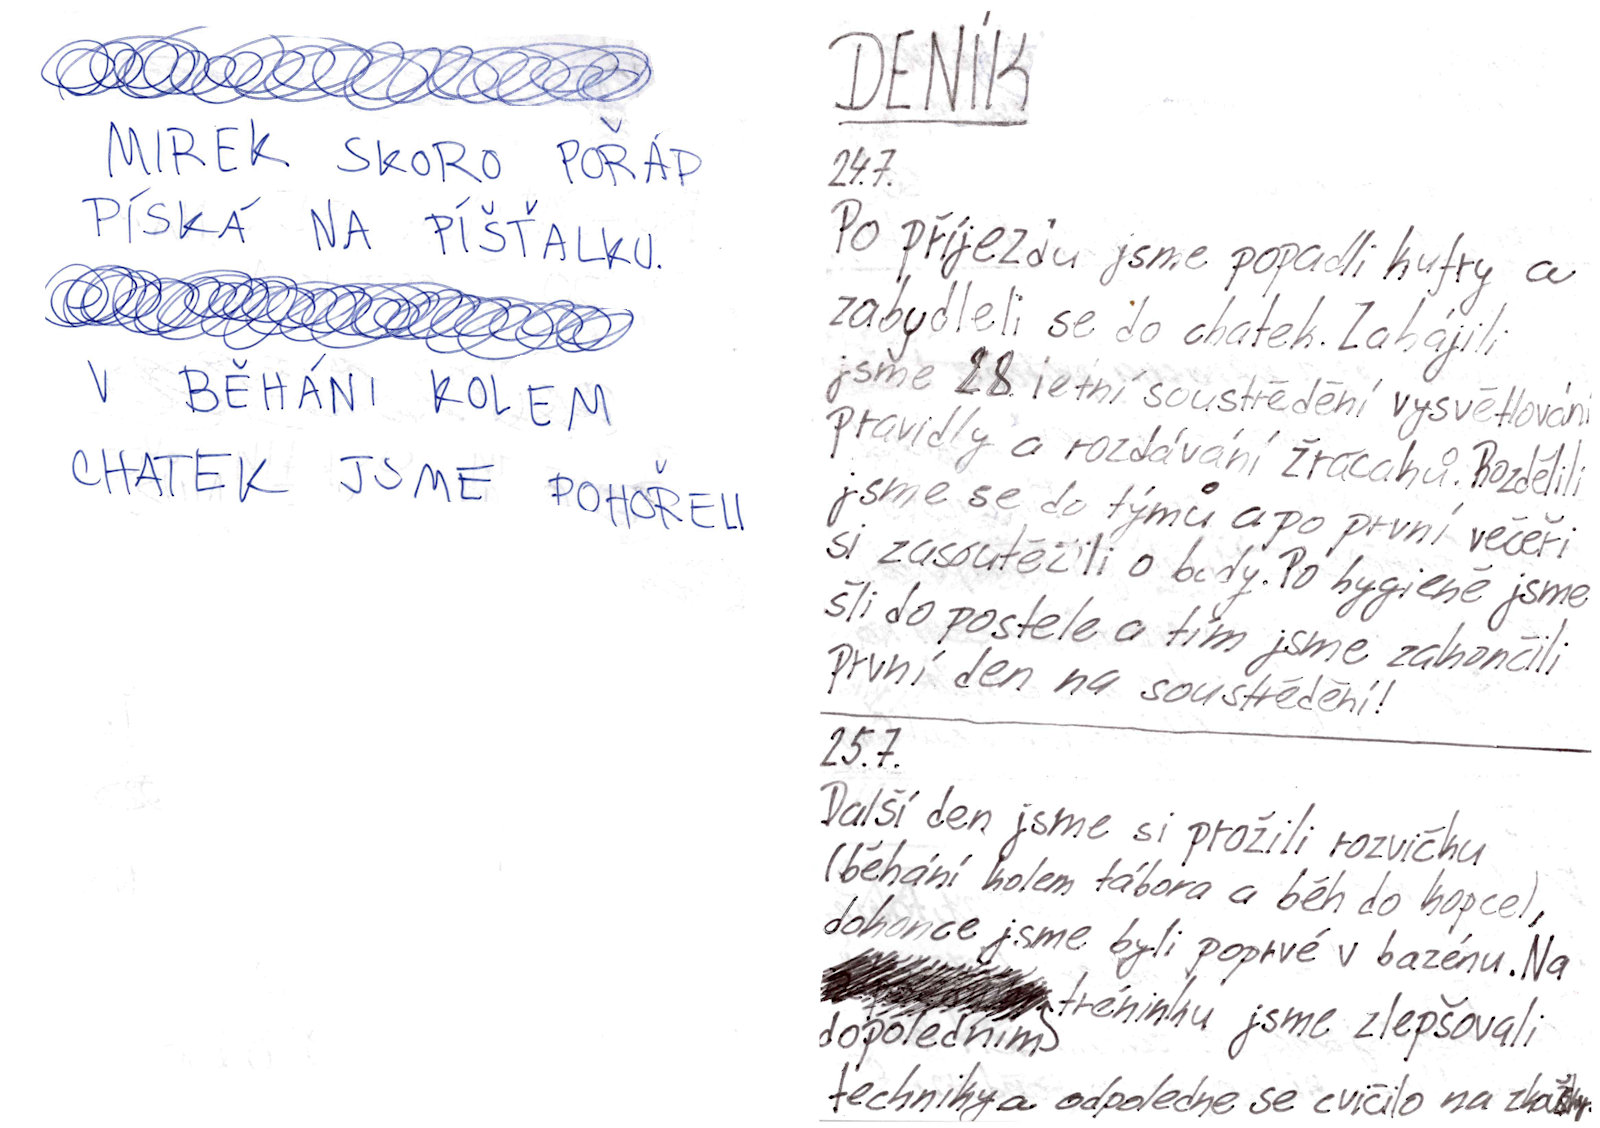 MIREK SKORO POŘÁD
PÍSKÁ NA PÍŠŤALKU.
V BĚHÁNI KOLEM
CHATEK JSME POHOŘELI
DENÍK
24.7.
Po příjezdu jsme popadli kufry a
zabydleli se do chatek. Zahájili
jsme 28. letní soustředění vysvětlování
pravidly a rozdávání žracáků. Rozdělili
jsme se do týmů a po první večeři
si zasoutěžili o body. Po hygieně jsme
šli do postele a tím jsme zakončili
první den na soustředění!
25.7.
Další den jsme si prožili rozvičku
(běhání kolem tábora a běh do kopce),
dokonce jsme byli poprvé v bazénu. Na
tréninku jsme zlepšovali
dopoledním
techniky a odpoledne se cvičilo na zkoušky.